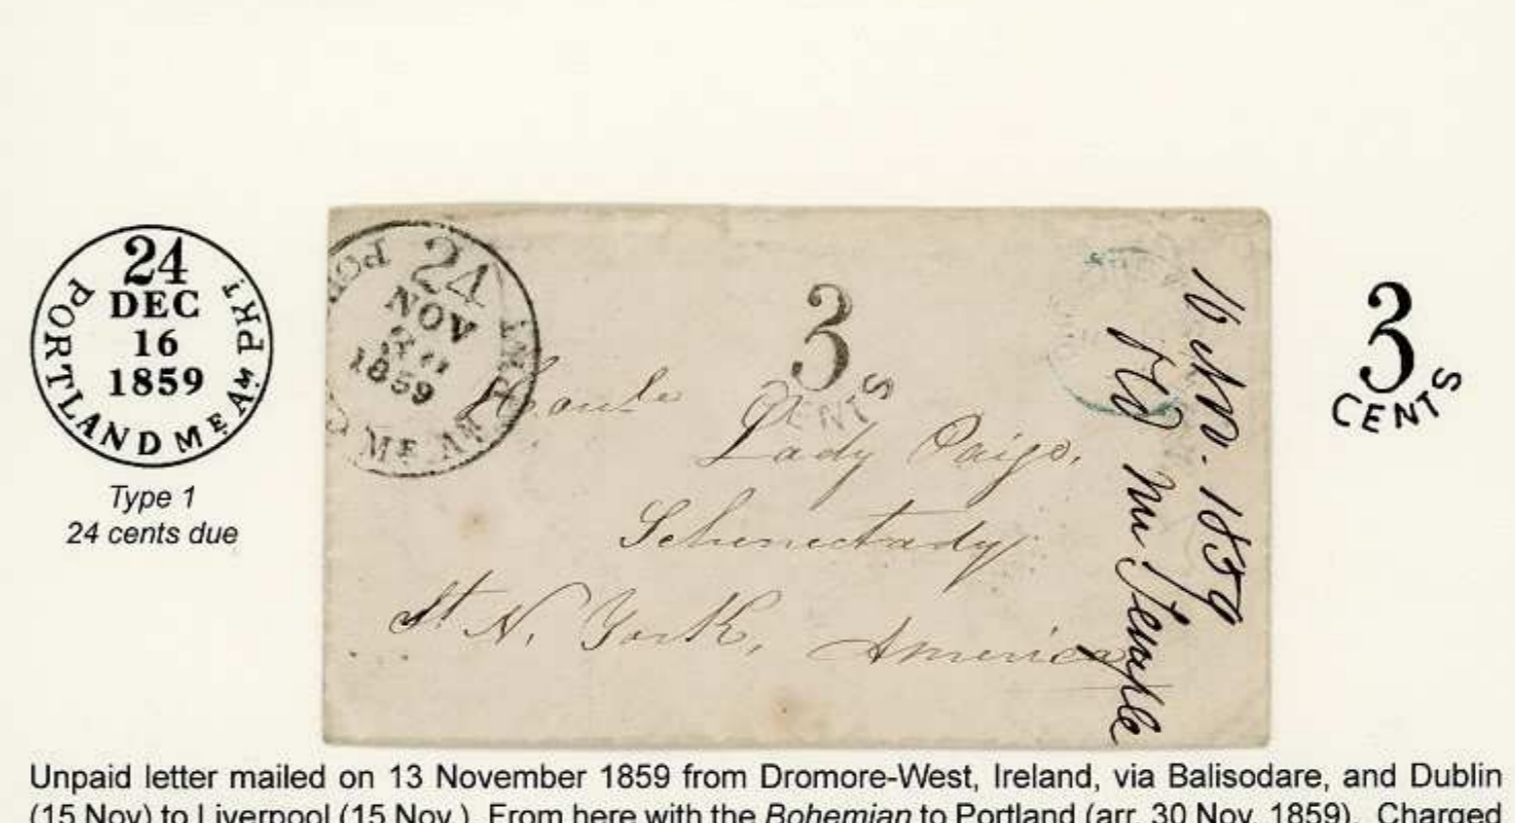 24
DEC
16
1859
PORTLAND ME AM PKT
Type 1
24 cents due
24
NOV
1859
ME AM PKT
3
CENTS
Lady Paige,
Schenectady
St N. York, America
16 Nov. 1859
3
CENTS
Unpaid letter mailed on 13 November 1859 from Dromore-West, Ireland, via Balisodare, and Dublin
(15 Nov) to Liverpool (15 Nov.) From here with the Bohemian to Portland (arr. 30 Nov. 1859). Charged